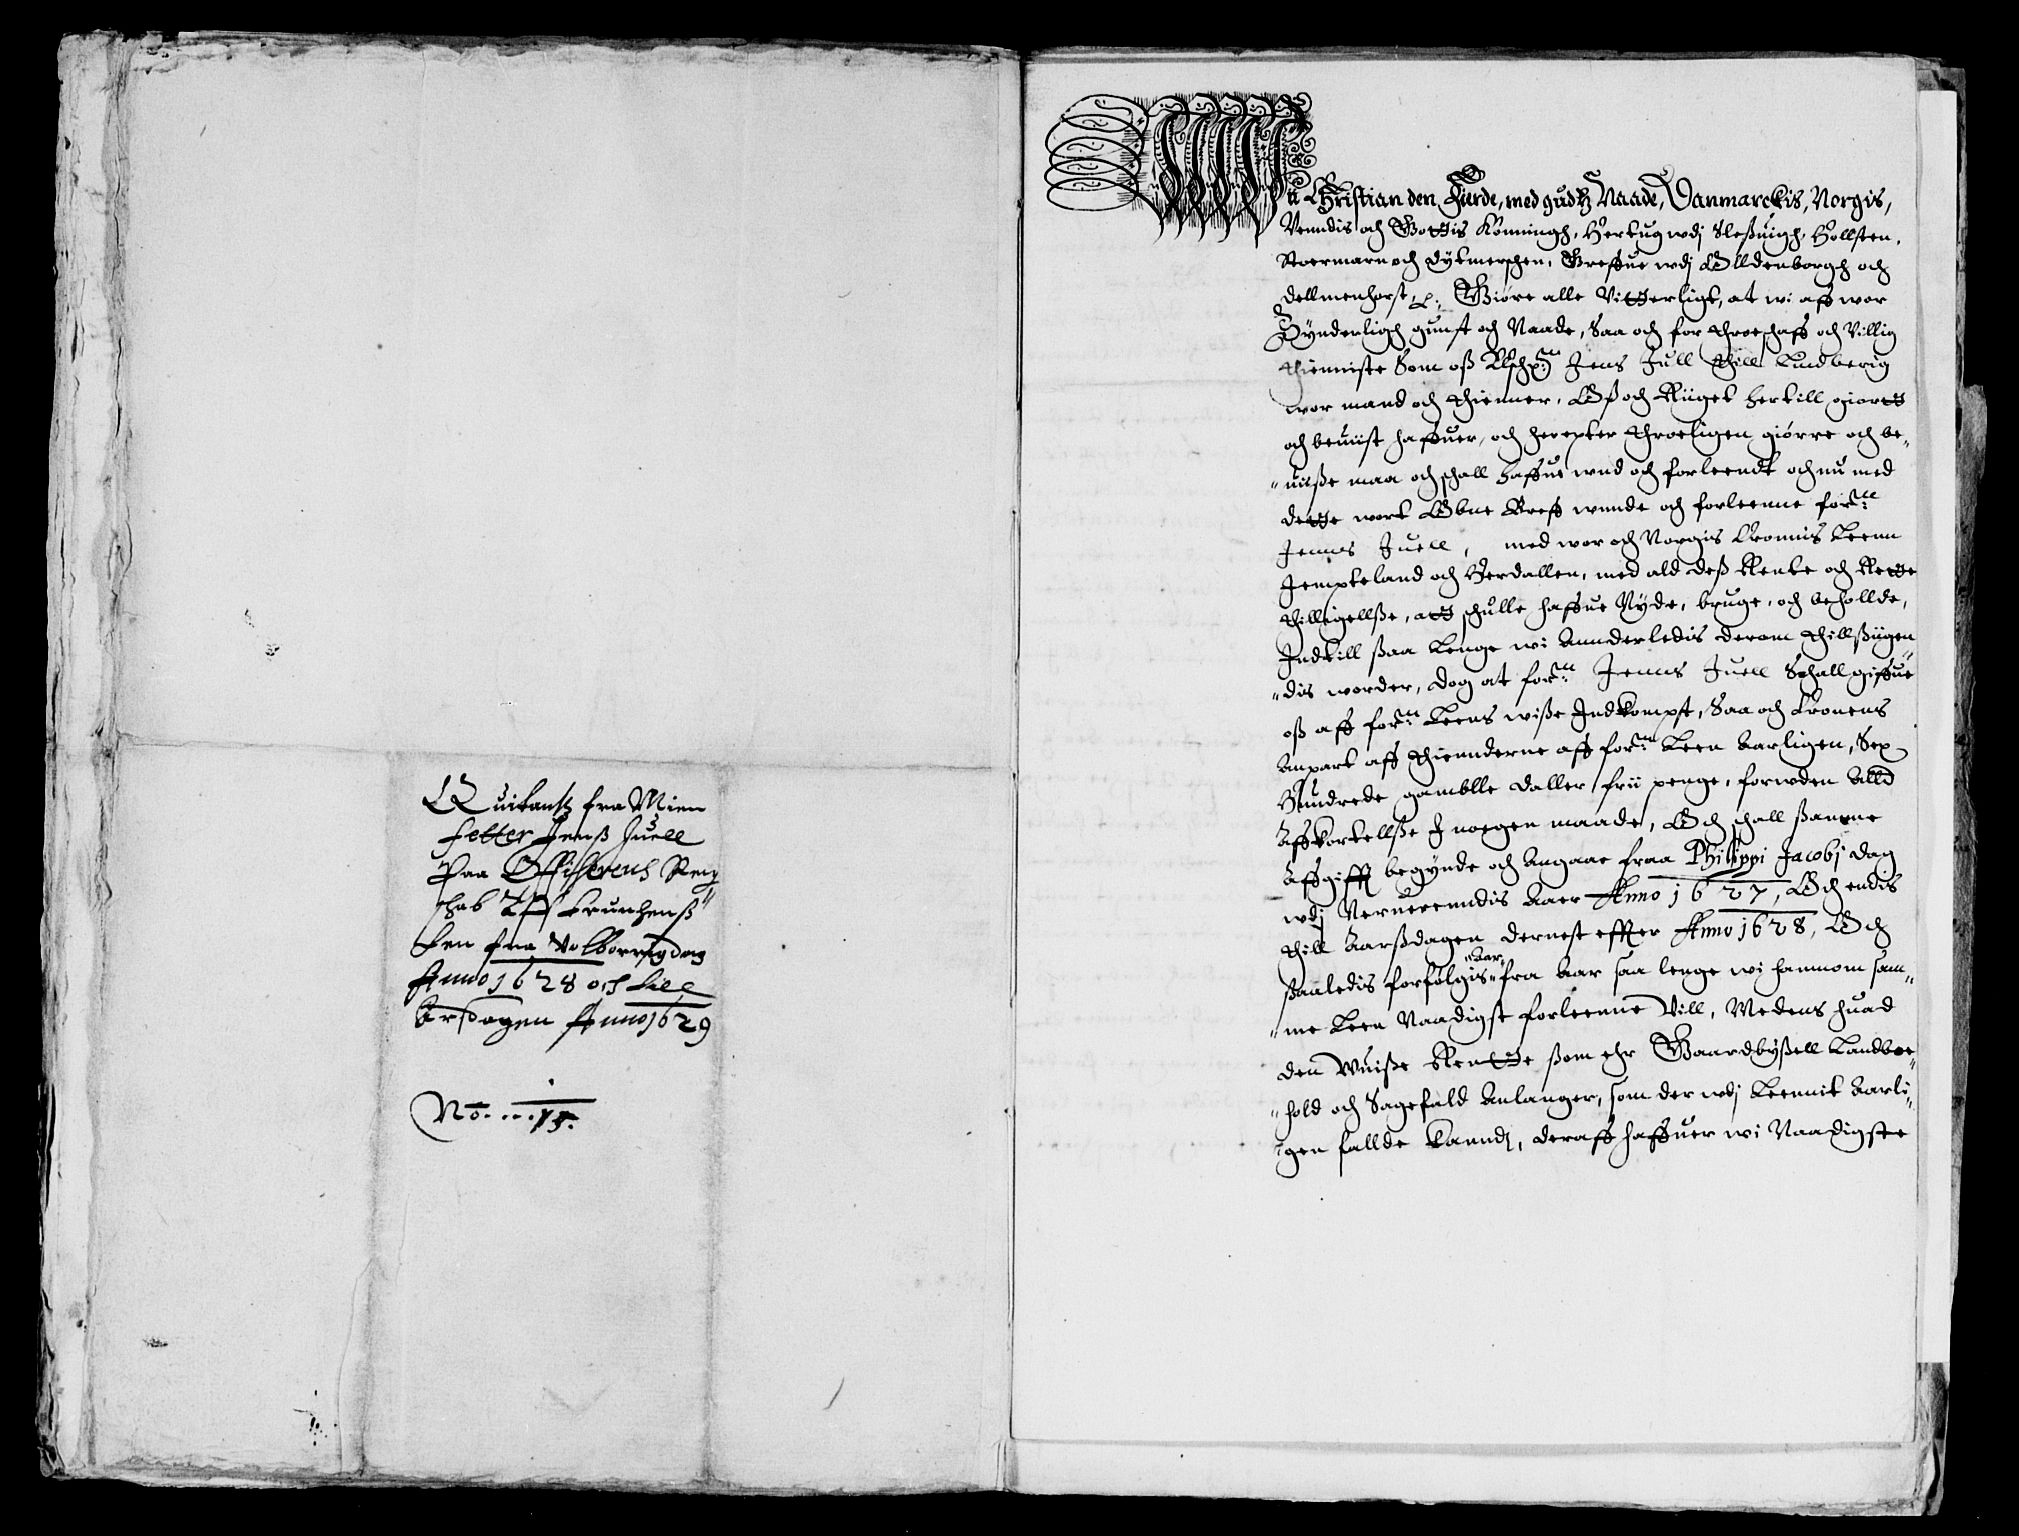 Quitantz fra Mien
fetter Jenß Juell
Paa Officerens Reig
schab
Len fra Volborrigdag
Anno 1628 och till
Arsdagen Anno 1629
No....15.
Wii Christian den Fierde, med gudtz Naade, Danmarckis, Norgis,
Venndis och Gottis Konningh, Hertug wdj Sleßuigh, Hollsten,
Stoermarn och Dytmerschen, Greffue wdj Olldenborgh och
Dellmenhorst, Giøre alle Vitterligt, at wi aff wor
Synderligh gunst och Naade, Saa och for throeschaff och Villig
thienniste Som oß Jens Jull thill Lundberig
wor mand och thienner, Oß och Riiget hertill giortt
och beuiist haffuer, och herepter throeligen giørre och be„
„uiiße maa och schall haffue wnd och forleendt och nu med
dette wort Obne Breff wnnde och forleenne forne
Jenns Juell, med wor och Norgis Cronnis Leenn
Jempteland och Herdallen, med ald deß Rente och Rette
thilligellße, att schulle haffue Nyde, bruge, och beholde,
Indtill ßaa Lenge wi Annderledis derom thillßiigen„
„dis worder, Dog at forne Jenns Juell Schall giffue
oß aff forne Leens wiße Indkompst, Saa och Cronens
Anpart aff thiennderne aff forne Leen Aarligen, Sex
Hundrede gamblle Daller frii penge, forwden Alld
Affkortellße I noegen maade, Och schall ßamme
Affgifft begynde och Angaae fraa Philippi Jacobj dag
wdj Nerueerendis Aaer Anno 1627, Och endis
thill Aarßdagen dernest effter Anno 1628, Och
ßaaledis forfølgis „Aar„ fra Aar saa lenge wi hannom sam„
„me Leen Naadigst forleenne Vill, Medens huad
den Wuiße Rentte ßom ehr Gaardbyßell Landboe„
„hold och Sagefald Anlanger, som der wdj Leennit Aarli„
„gen fallde kannd, deraff haffuer wi Naadigste